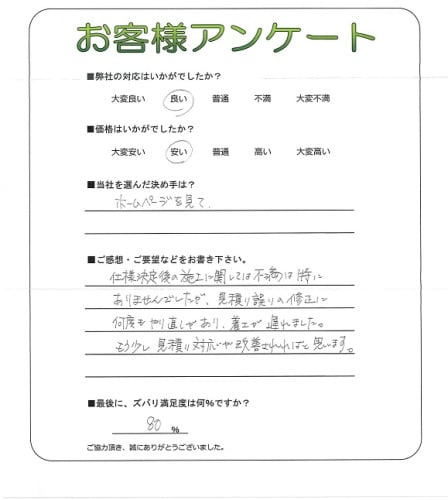 お客様アンケート
■弊社の対応はいかがでしたか？
大変良い 良い 普通 不満 大変不満
■価格はいかがでしたか？
大変安い 安い 普通 高い 大変高い
■当社を選んだ決め手は？
ホームページを見て、
■ご感想・ご要望などをお書き下さい。
仕様決定後の施工に関しては不満は特に
ありませんでしたが、見積り誤りの修正に
何度もやり直しがあり、着工が遅れました。
もう少し見積り対応が改善されればと思います。
■最後に、ズバリ満足度は何％ですか？
80 %
ご協力頂き、誠にありがとうございました。